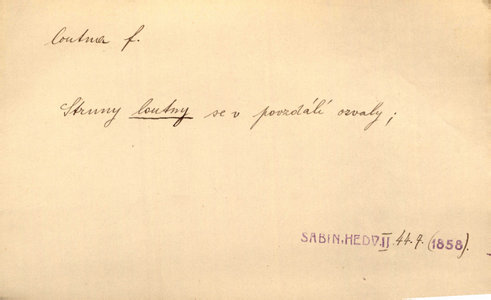 loutna f.
Struny loutny se v povzdálí ozvaly;
SABIN.HEDV.II.44.9. (1858).